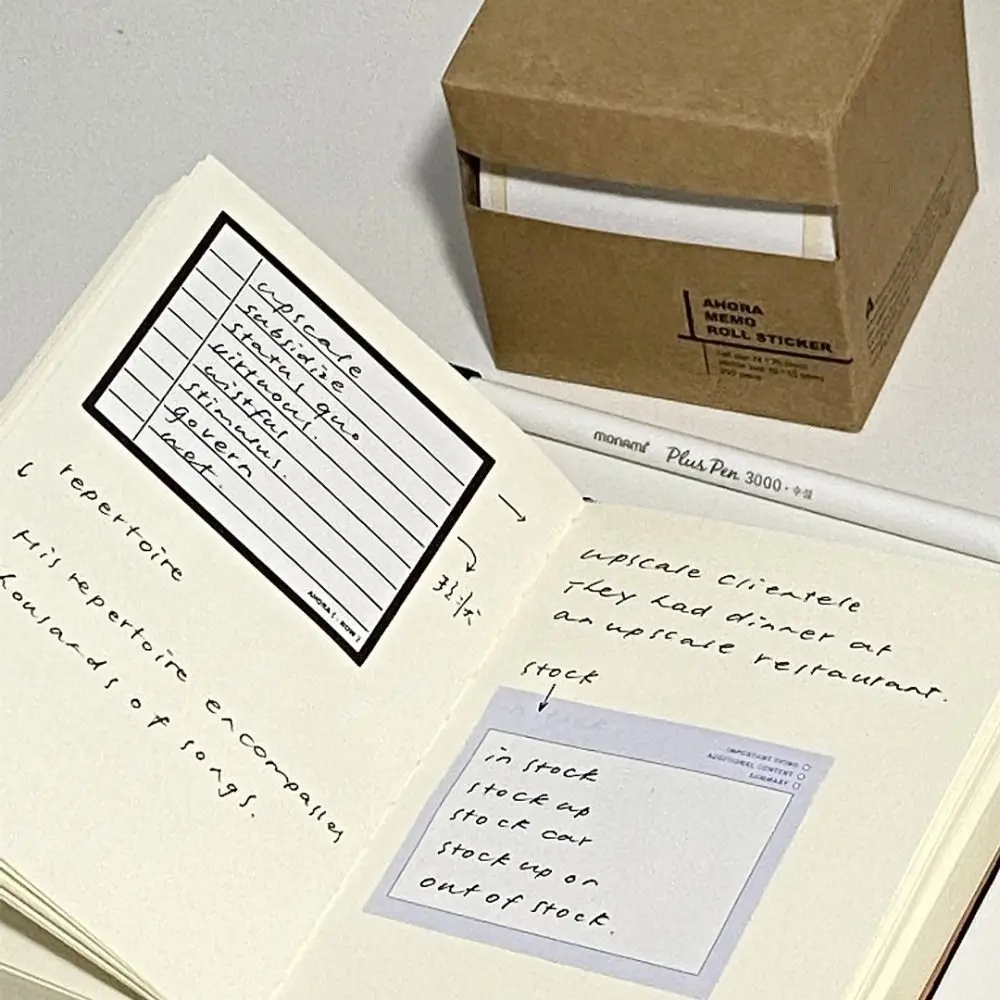 AHORA
MEMO
ROLL STICKER
monami Plus Pen 3000 · 수성
upscale
subsidize
status quo
virtuous.
wistful
stimulus.
govern
net.
repertoire
His repertoire encompasses
thousands of songs.
upscale clientele
They had dinner at
an upscale restaurant.
stock
IMPORTANT THING
ADDITIONAL CONTENT
SUMMARY
in stock
stock up
stock car
stock up on
out of stock.